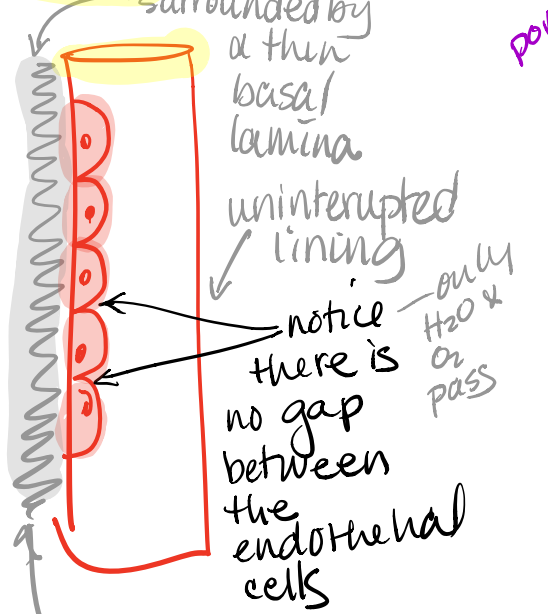 surrounded by
a thin
basal
lamina
uninterupted
lining
notice
there is
no gap
between
the
endothelial
cells
only
H2O &
pass